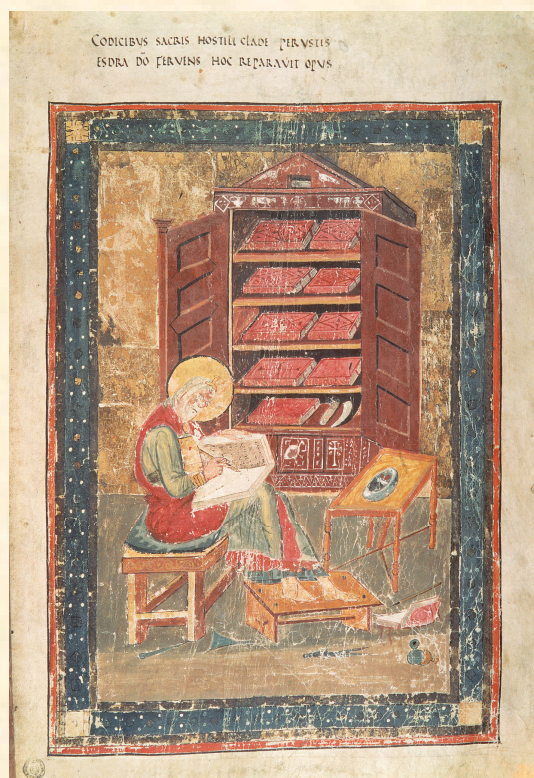 CODICIBUS SACRIS HOSTILI CLADE PERUSTIS
ESDRA D̄O FERVENS HOC REPARAVIT OPUS